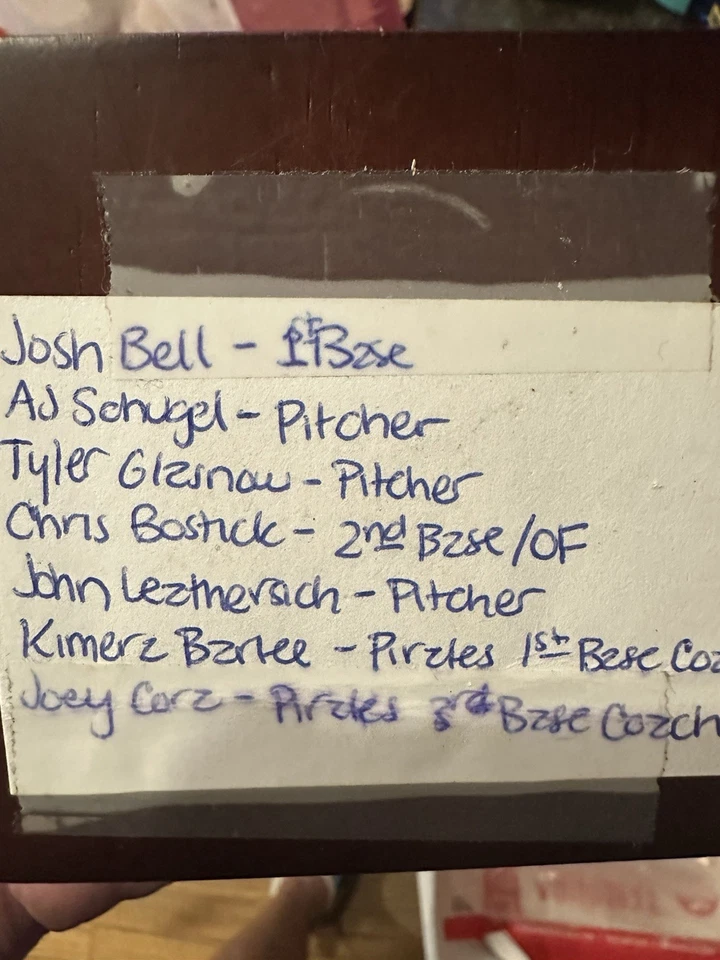 Josh Bell - 1st Base
AJ Schugel - Pitcher
Tyler Glasnow - Pitcher
Chris Bostick - 2nd Base/OF
John Leathersich - Pitcher
Kimera Bartee - Pirates 1st Base Coa
Joey Cora - Pirates 3rd Base Coach